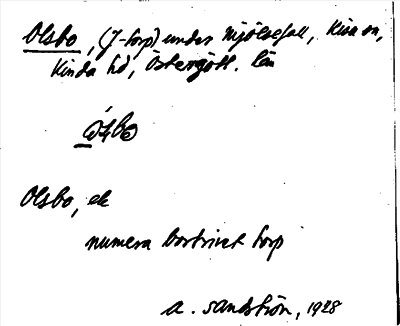 Olsbo, (f-torp) under Mjölsefall, Kisa sn,
Kinda hd, Östergötl. län
Olsbo, ek
numera bortrivet torp
A. Sandström, 1928